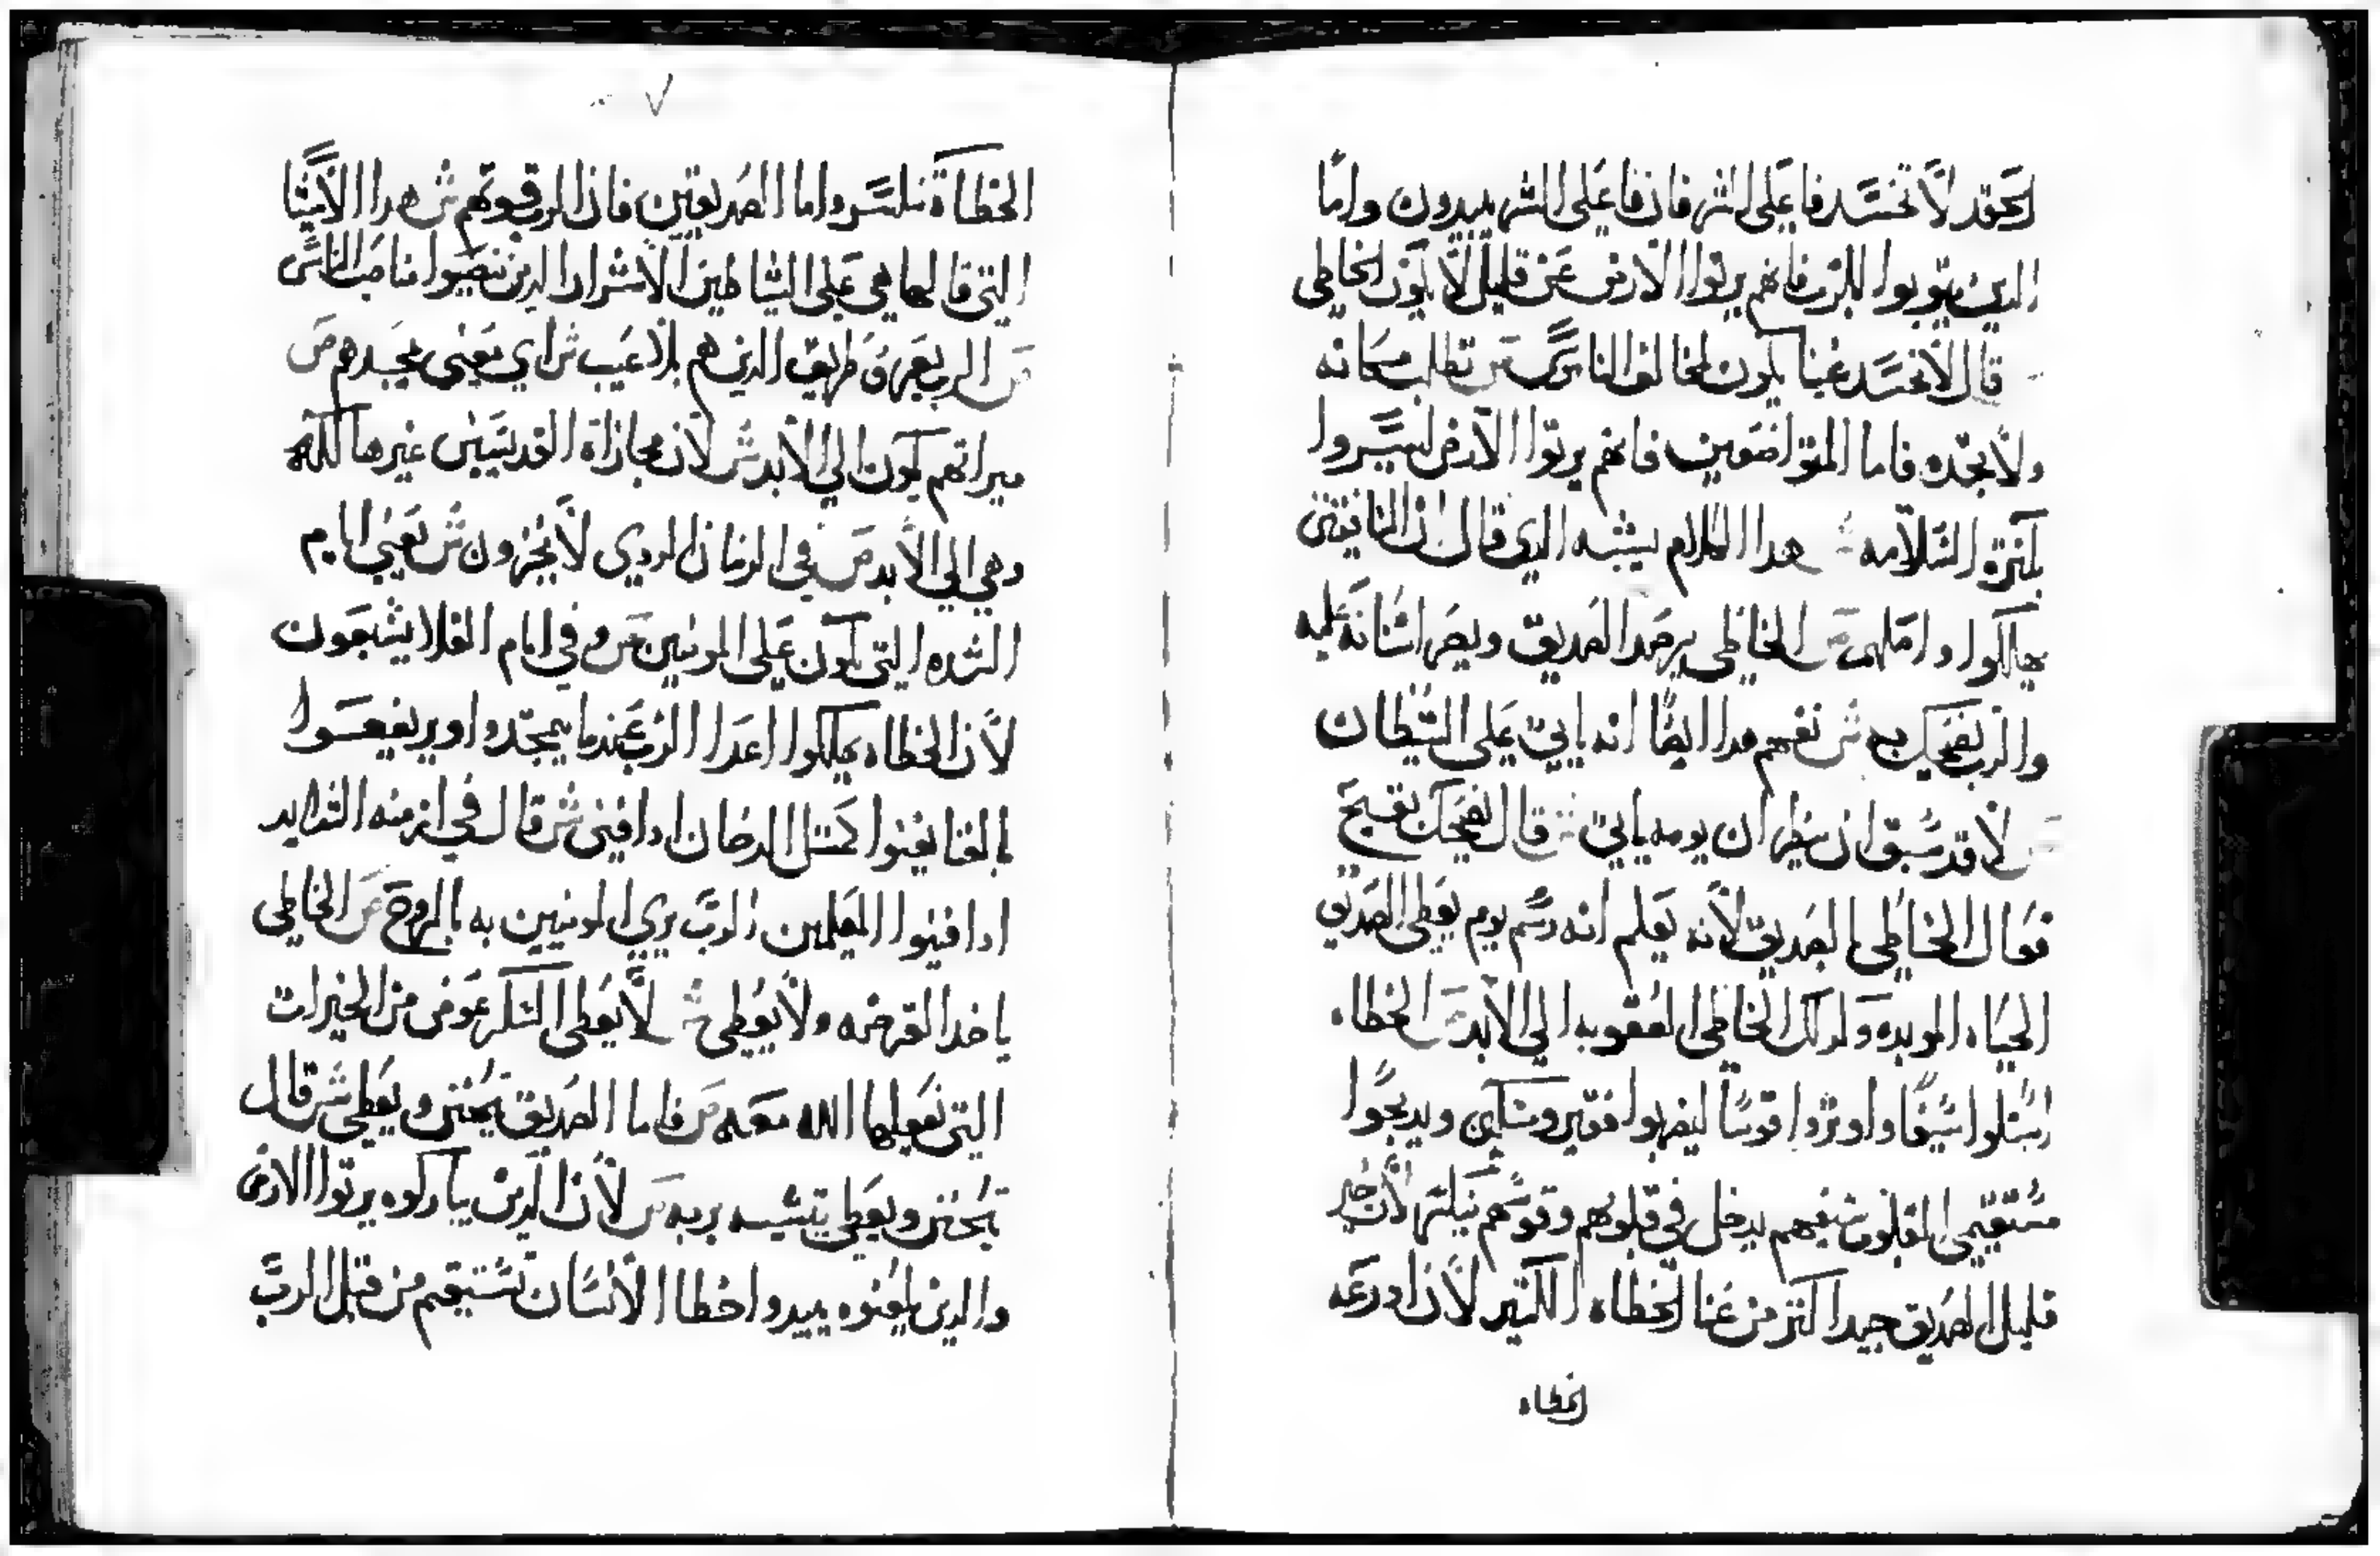 الحقد لا تحسد فاعلى الشر فان فاعلى الشر يبيدون واما
الدين يتوبوا للرب فانهم يرتوا الارض عن قليل لا يكون الخاطي
قال لا تحسد غنا يكون لمخالف الناموس ص تطلب مكانه
ولا تجده فاما المتواضعين فانهم يرتوا الارض ليسروا
بكترة السلامه ش هدا الكلام يشبه الدي قال ان المنافقين
يهلكوا وامثالهم ص الخاطي يرصد الصديق ويصر اسنانه عليه
والرب يضحك به ش نفهم هدا ايضا انه ياتي على الشيطان
ص لا قد سبق ان ينظر ان يومه ياتي ش قال يضحك تقبح
فعال الخاطي بالصديق لانه يعلم انه رسم يوم يعطي الصديق
الحياه الموبده وكدلك الخاطي العقوبه الي الابد ص الخطاه
استلوا سيفا واوتروا قوسا ليضربوا فقير ومسكين ويدبحوا
مستقيمي القلوب سيفهم يدخل في قلوبهم وقوسهم تنكسر لان خير
قليل للصديق جيد اكتر من غنا الخطاه الكتير لان ادرعه
الخطاه
الخطاة تنكسر واما الصديقين فان الرب قوتهم ش هدا الاشيا
التي قالها هي على الشياطين الاشرار الدين ينصبوا مناصب الناس
ص الرب يعرف طريق الدين هم بلا عيب ش اي يعني يمجدهم ص
ميراتهم يكون الي الابد ش لان مجازاة القديسين غيرها الله
وهي الي الابد ص في الزمان الردي لا يخزون ش يعني ايام
الشده التي تكون على المومنين ص وفي ايام الغلا يشبعون
لان الخطاه يهلكوا اعدا الرب عندما يمجدوا ويرتفعوا
بالفنا يفنوا كمتل الدخان ادا فني ش قال في ازمنه الشدايد
ادا فنيوا المعلمين الرب يربي المومنين به بالروح ص الخاطي
ياخد القرضه ولا يعطي ش لا يعطي الشكر عوض من الخيرات
التي فعلها الله معه ص فاما الصديق يتحنن ويعطي ش قال
يتحنن ويعطي يتشبه بربه ص لان الدين يباركوه يرتوا الارض
والدين يلعنوه يبيدوا خطا الانسان تستقيم من قبل الرب